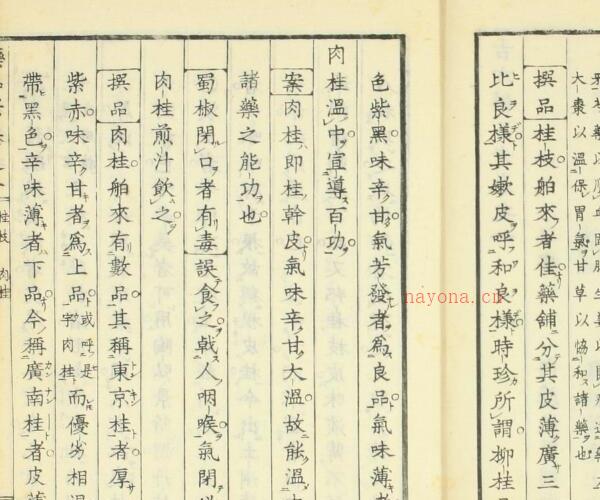 大棗以溫保胃氣甘草以協和諸藥也
撰品桂枝舶來者佳藥舖分其皮薄廣三
比良樣其嫩皮呼和良樣時珍所謂柳桂
色紫黑味辛甘氣芳發者爲良品氣味薄者
肉桂溫中宣導百功
案肉桂即桂幹皮氣味辛甘大溫故能溫
諸藥之能功也
蜀椒閉口者有毒誤食之戟人咽喉氣閉
肉桂煎汁飲之
撰品肉桂舶來有數品其稱東京桂者厚
紫赤味辛甘者爲上品或呼是字肉桂而優劣相
帶黑色辛味薄者下品今稱廣南桂者皮
桂枝 肉桂
nayona.cn